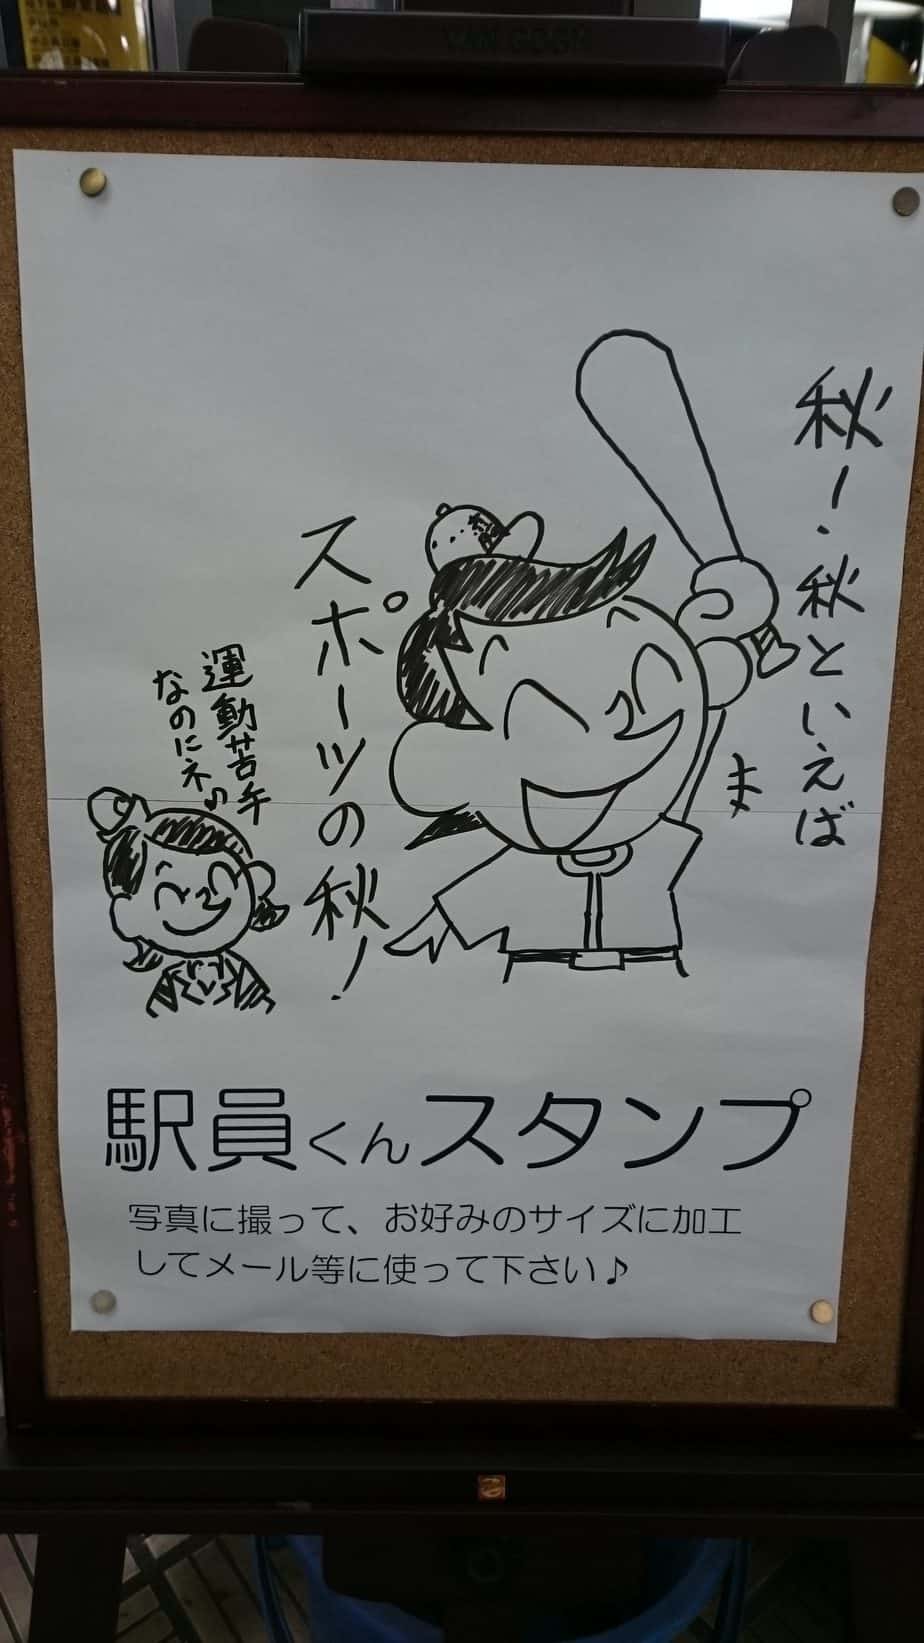 VAN GOGH
秋!秋といえば
スポーツの秋!
運動苦手
なのにネ♪
駅員くんスタンプ
写真に撮って、お好みのサイズに加工
してメール等に使って下さい♪